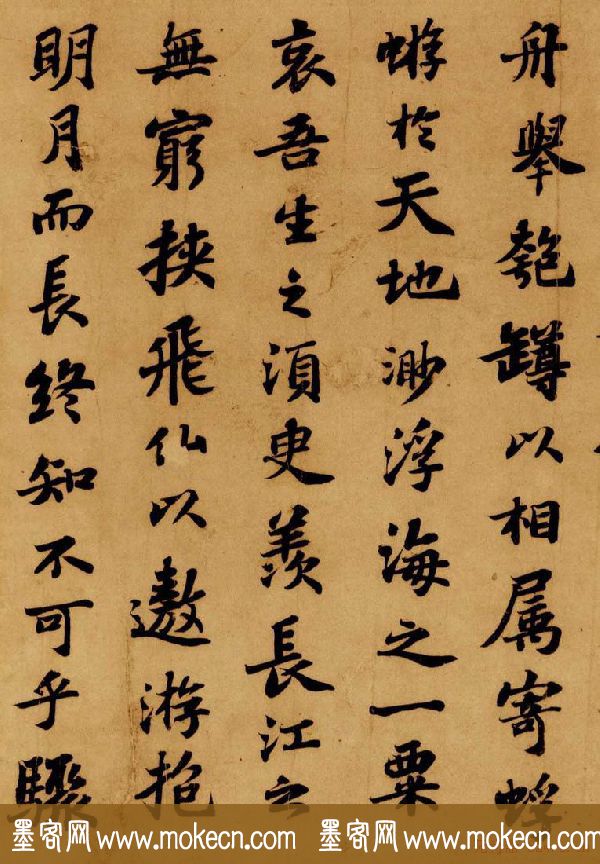 舟舉匏罇以相屬寄蜉
蝣於天地渺浮海之一粟
哀吾生之須臾羨長江之
無窮挾飛仙以遨游抱
明月而長終知不可乎驟
墨客网 www.mokecn.com 墨客网 www.mokecn.com